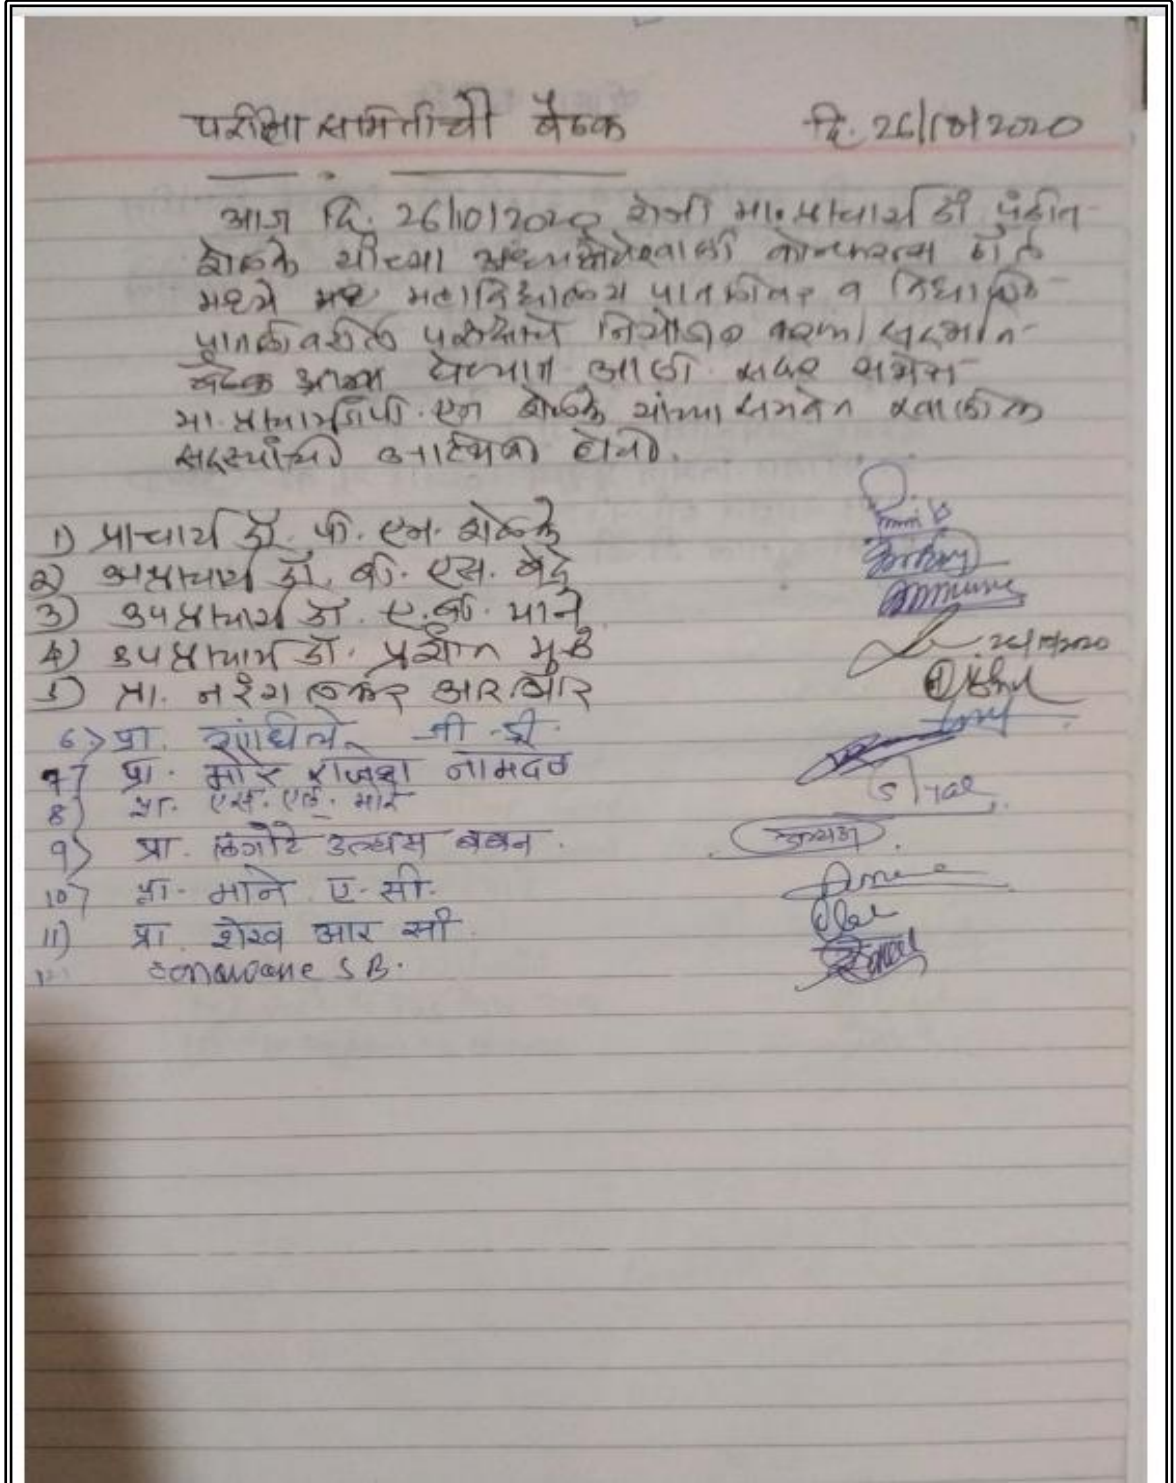 परीक्षा समितीची बैठक दि. 26/10/2020
आज दि. 26/10/2020 रोजी मा. प्राचार्य डॉ पंडीत
शेळके यांच्या अध्यक्षतेखाली कोन्फरन्स हॉल
मध्ये महाविद्यालय पातळीवर व विद्यापीठ
पातळीवरील परीक्षांचे नियोजन करणे संदर्भात
बैठक घेण्यात आली. सदर सभेस
मा. प्राचार्य पी. एन शेळके यांच्या समवेत खालील
सदस्यांची उपस्थिती होती.
1) प्राचार्य डॉ. पी. एन. शेळके
2) उपप्राचार्य डॉ. बी. एस.
3) उपप्राचार्य डॉ. ए. बी. माने
4) उपप्राचार्य डॉ. प्रशांत 26/10/2020
5) प्रा. आर आर
6) प्रा. जी. डी.
7) प्रा. मोरे राजेश नामदेव
8) प्रा. एस. एल. मोरे
9) प्रा. लगोटे उल्हास बबन.
10) प्रा. माने ए. सी.
11) प्रा. शेख आर सी.
Sonawane S B.